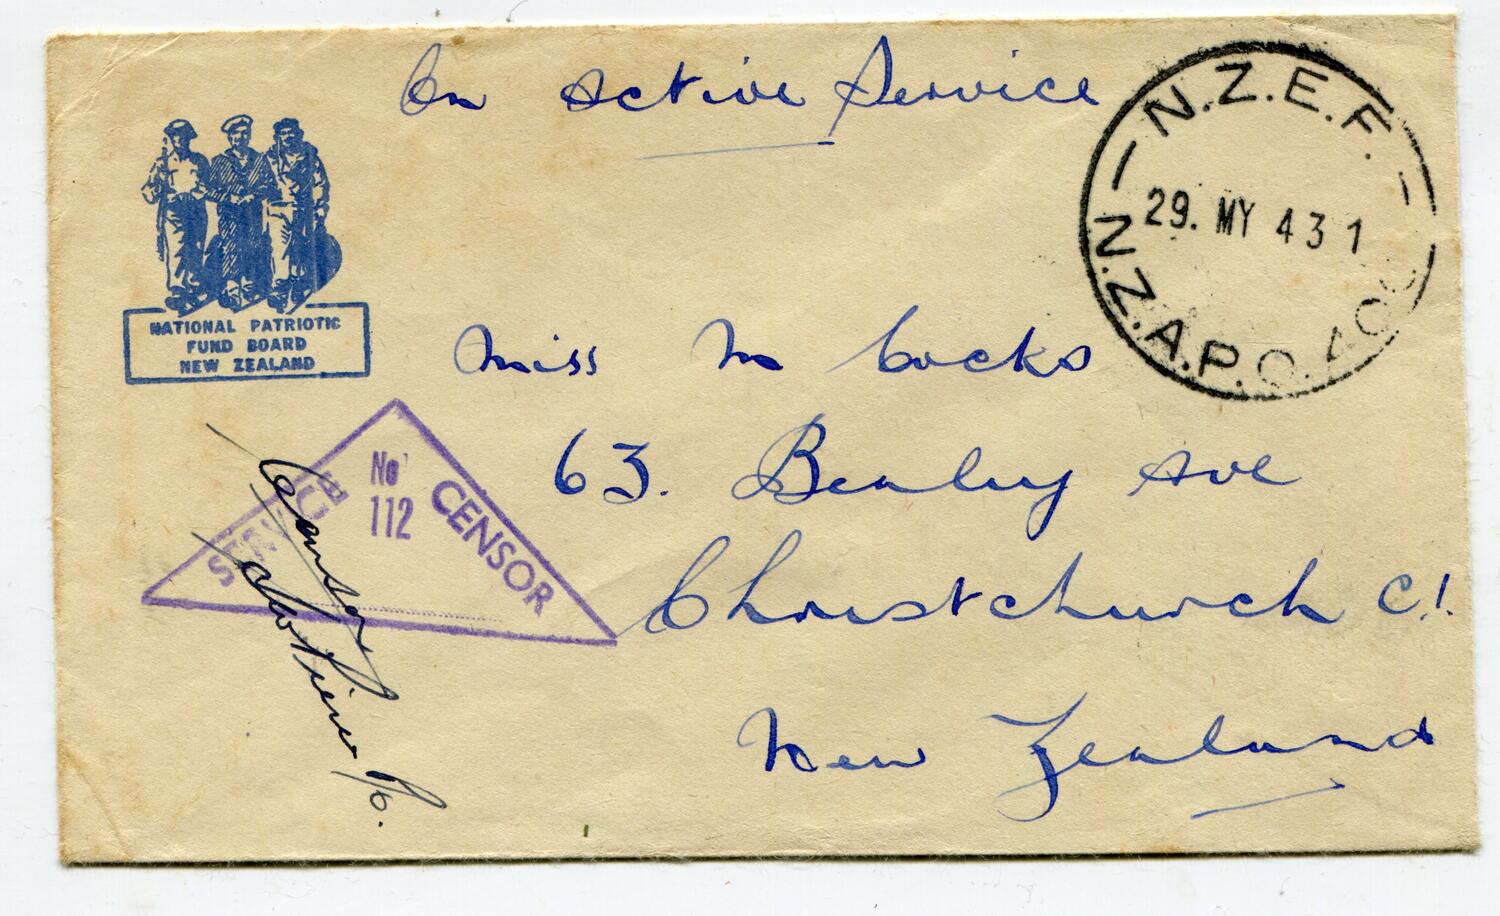 On Active Service
N.Z.E.F.
29. MY 43 1
N.Z.A.P.O.
NATIONAL PATRIOTIC
FUND BOARD
NEW ZEALAND
Miss M Cocks
63. Bealey Ave
Christchurch C1.
New Zealand
SERVICE CENSOR
No
112